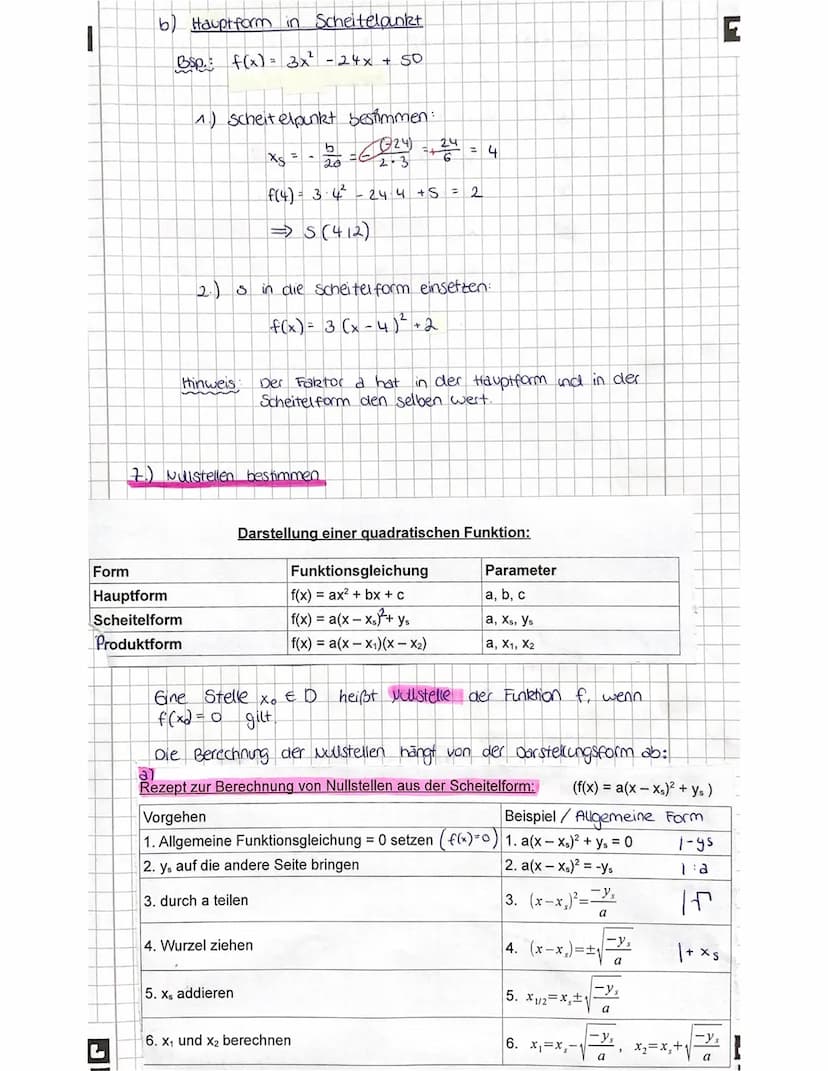 b) Hauptform in Scheitelpunkt
Bsp.: f(x) = 3x² - 24x + 50
1.) Scheitelpunkt bestimmen:
xₛ = - b/2a = - (-24)/2·3 = + 24/6 = 4
f(4) = 3·4² - 24·4 + 5 = 2
⇒ S(4|2)
2.) S in die Scheitelform einsetzen:
f(x) = 3(x-4)² + 2
Hinweis: Der Faktor a hat in der Hauptform und in der
Scheitelform den selben Wert.
7.) Nullstellen bestimmen
Darstellung einer quadratischen Funktion:
Form Funktionsgleichung Parameter
Hauptform f(x) = ax² + bx + c a, b, c
Scheitelform f(x) = a(x – xₛ)²+ yₛ a, xₛ, yₛ
Produktform f(x) = a(x – x₁)(x – x₂) a, x₁, x₂
Eine Stelle x₀ ∈ D heißt Nullstelle der Funktion f, wenn
f(x₀) = 0 gilt.
Die Berechnung der Nullstellen hängt von der Darstellungsform ab:
a)
Rezept zur Berechnung von Nullstellen aus der Scheitelform: (f(x) = a(x – xₛ)² + yₛ )
Vorgehen Beispiel / Allgemeine Form
1. Allgemeine Funktionsgleichung = 0 setzen (f(x)=0) 1. a(x – xₛ)² + yₛ = 0 |-yₛ
2. yₛ auf die andere Seite bringen 2. a(x – xₛ)² = -yₛ |:a
3. durch a teilen 3. (x−xₛ)²=−yₛ/a |√
4. Wurzel ziehen 4. (x−xₛ)=±√(−yₛ/a) |+xₛ
5. xₛ addieren 5. x₁/₂=xₛ±√(−yₛ/a)
6. x₁ und x₂ berechnen 6. x₁=xₛ−√(−yₛ/a) , x₂=xₛ+√(−yₛ/a)